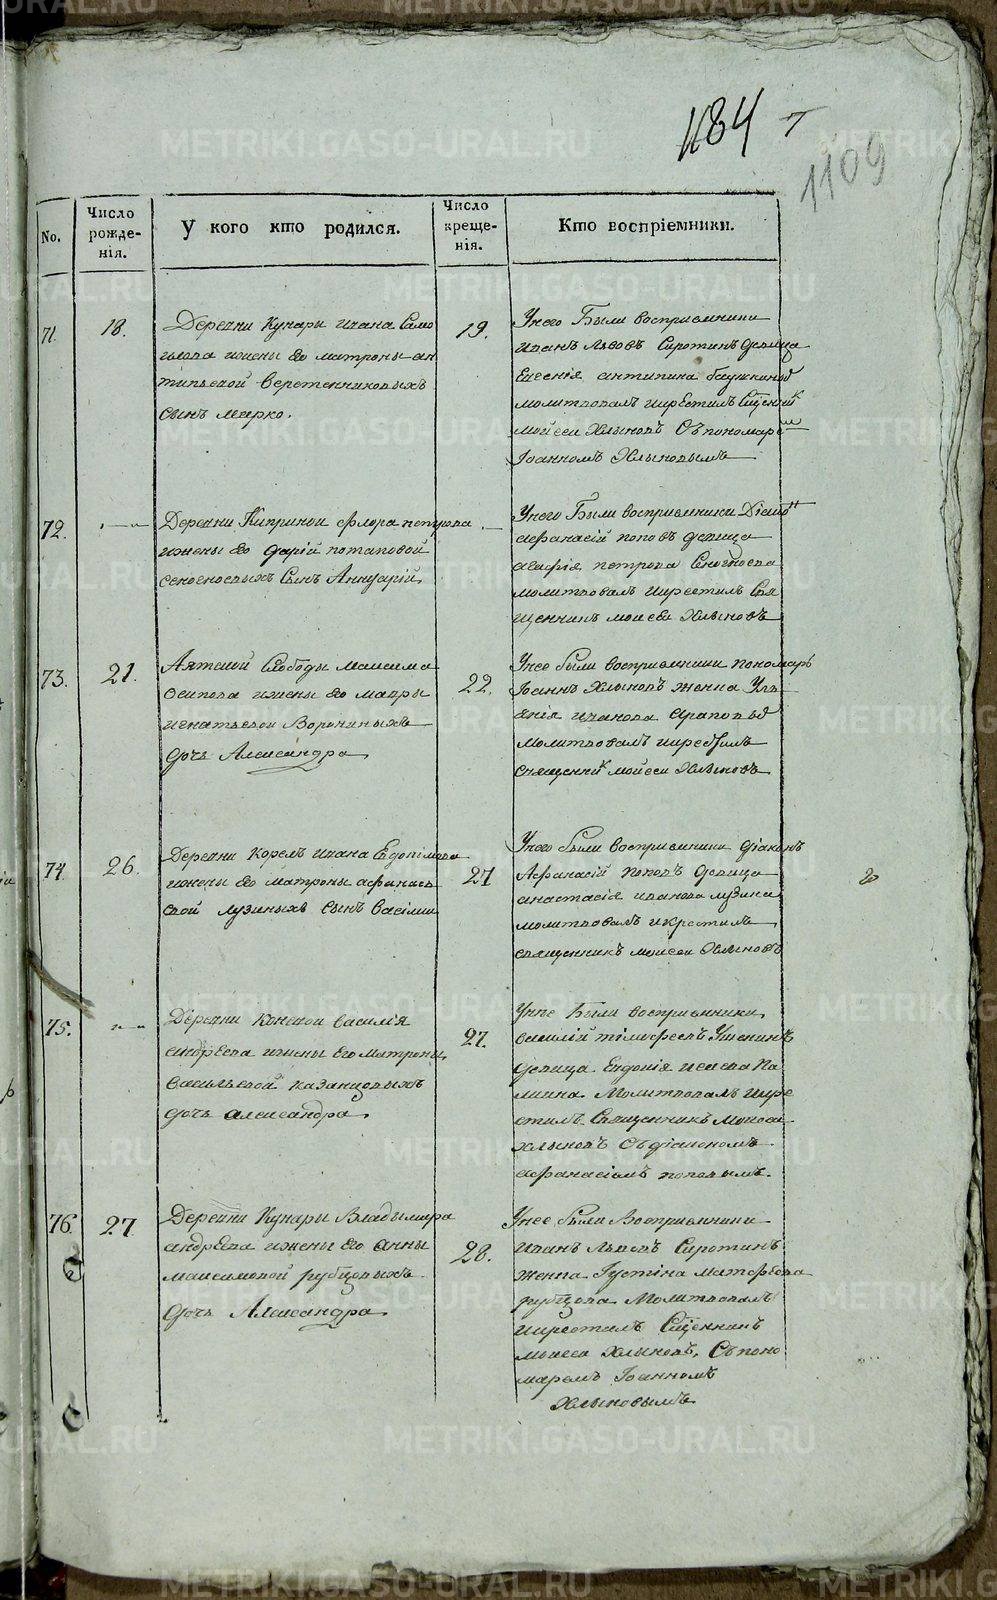 1184 7
1109
No.
Число рожде-нія.
У кого кто родился.
Число креще-нія.
Кто воспріемники.
71.
18.
Деревни Кунары Ивана Само
илова ижены Его матроны ан
типьевой Веретенниковыхъ
сынъ марко.
19.
Унего Были восприемники
Иванъ Львовъ Сиротинъ девица
Евгенія антипина
молитвовалъ икрестилъ Сщенник
Мойсей Хлыновъ Съ пономаре
Іоанномъ Хлыновымъ
72.
Деревни Киприной Флора петрова
ижены Его дарій потаповой
Сын Аннуарій
Унего Были восприемники Діяко
Афанасій поповъ девица
агафія петрова
молитвовалъ икрестилъ Свя
щенникъ моисей Хлыновъ
73.
21.
Аятской Слободы Максима
Осипова ижены Его мавры
игнатьевой Ворониныхъ
дочь Александра
22.
Унее были восприемники пономарь
Іоаннъ Хлыновъ женка
Иванова
молитвовалъ икрестилъ
священник мойсей Хлыновъ
74
26.
Деревни Корелъ Ивана Евдокімова
ижены Его матроны афанась
евой лузиныхъ сынъ Васілии
27
Унего были восприемники діаконъ
Афанасій поповъ девица
анастасія иванова лузина
молитвовалъ икрестилъ
священникъ моисей Хлыновъ
75.
Деревни Коневой василія
андреева ижены Его матроны
васильевой казанцовыхъ
дочь александра
27.
Унее Были восприемники
василій тімофеевъ
девица Евдокія
молитвовалъ икре
стилъ Священникъ Моисей
хлыновъ Съ діакономъ
афанасіемъ поповымъ.
76.
27
Деревни Кунары Владимира
андреева ижены Его анны
максимовой рубцовыхъ
дочь Александра
28.
Унее были Восприемники
Иванъ Львовъ Сиротинъ
женка Густіна матфеева
рубцова Молитвовалъ
икрестилъ Сщенникъ
моисей Хлыновъ, Съ поно
маремъ Іоанномъ
Хлыновымъ